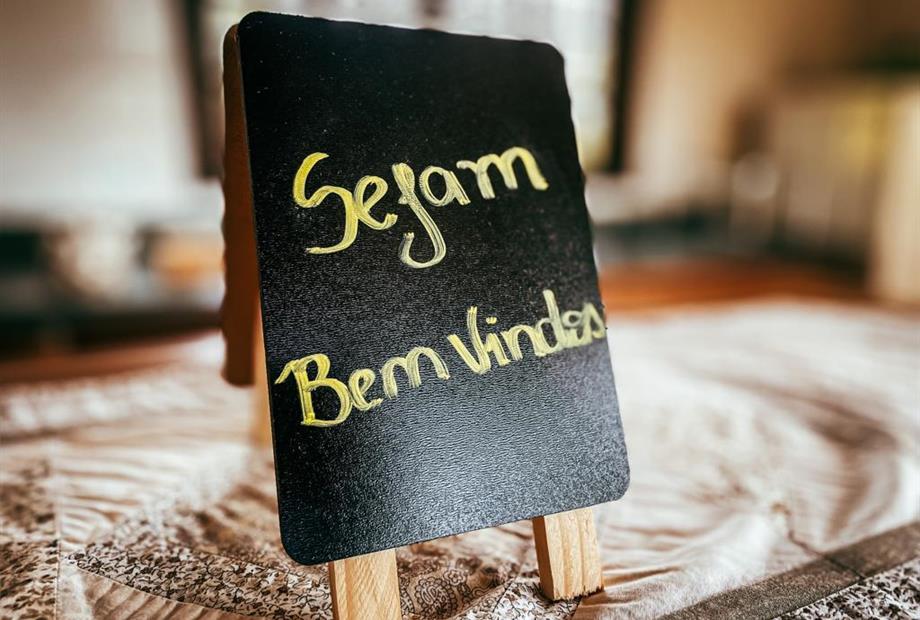 Sejam
Bem Vindos